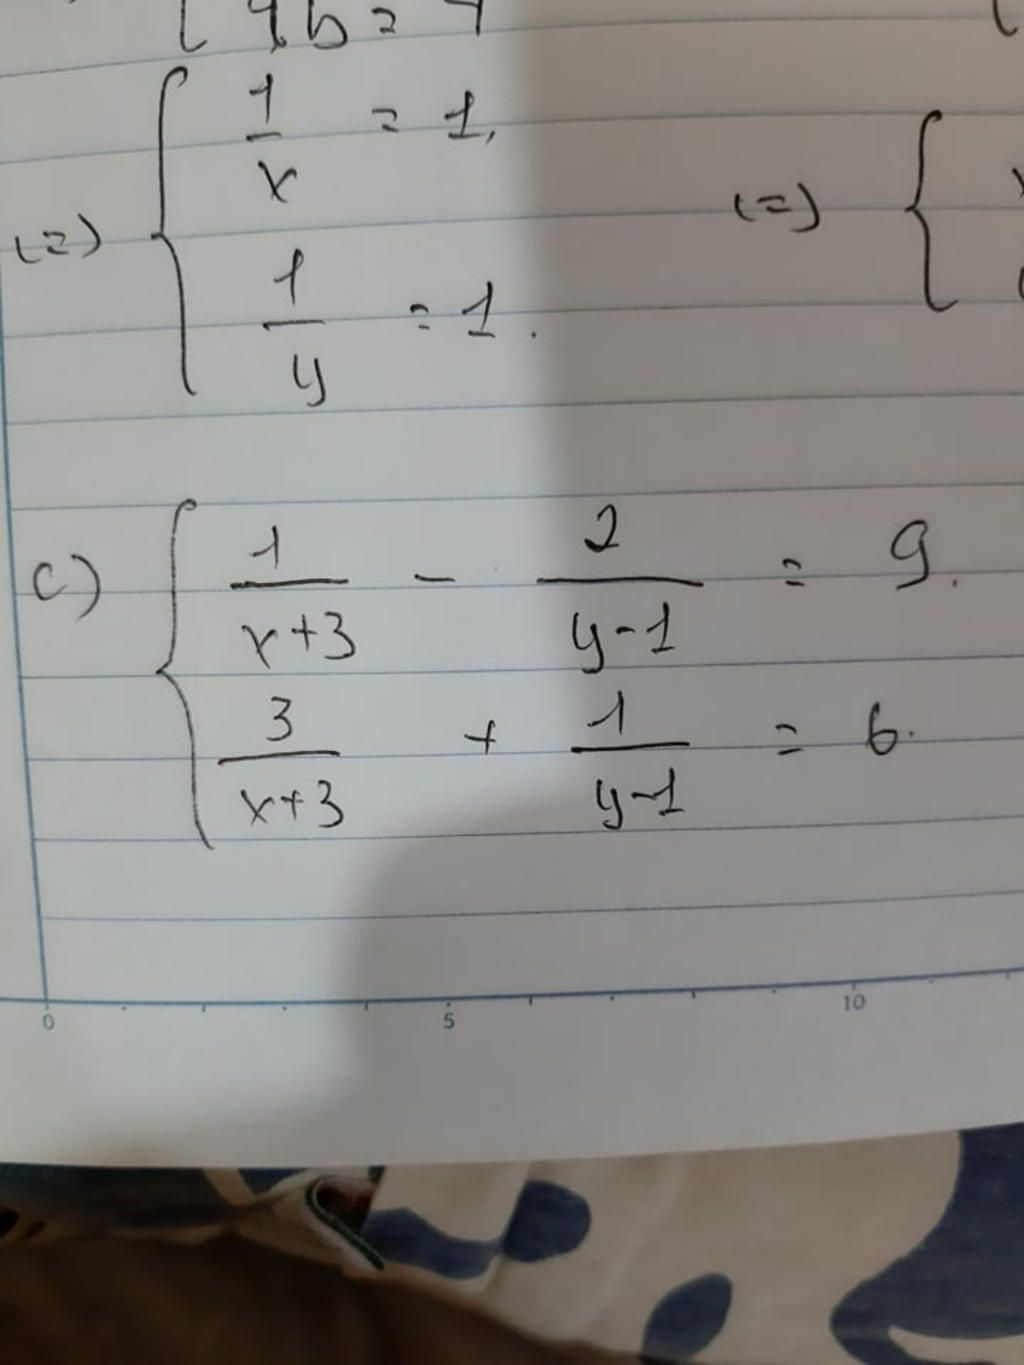 (=) { 1/x = 1,
(=) {
1/y = 1.
c) { 1/(x+3) - 2/(y-1) = 9.
3/(x+3) + 1/(y-1) = 6.
0 5 10